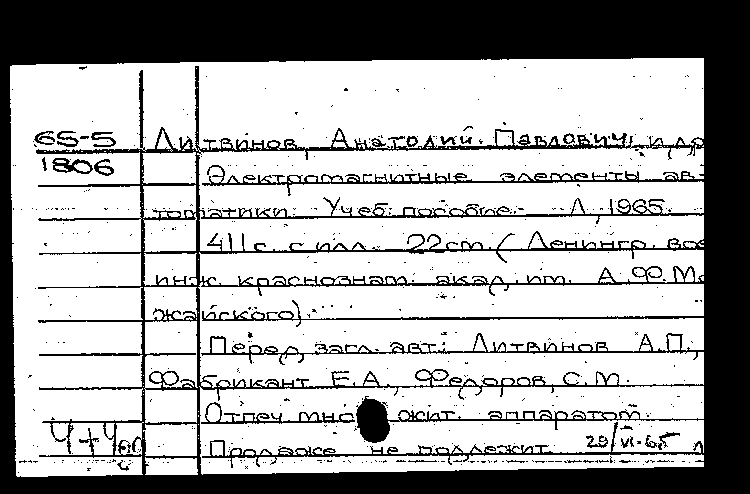 65-5 Литвинов, Анатолий Павлович и др
1806
Электромагнитные элементы ав-
томатики. Учеб. пособие. Л., 1965.
411 с. с илл. 22 см. (Ленингр. вое
инж. краснознам. акад. им. А.Ф. Мо
жайского).
Перед загл. авт.: Литвинов А.П.,
Фабрикант Е.А., Федоров, С.М.
Отпеч. мно жит. аппаратом.
Продаже не подлежит 29/VI-65